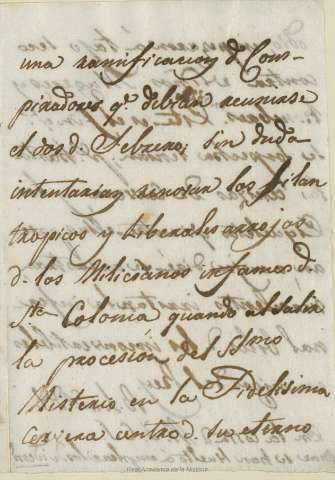 una ramificacion de Cons-
piradores qe. debian reunirse
el dos d. Febrero; sin duda
intentarian renovar los filan
tropicos y liberales arrojos
d. los Milicianos infames d.
Sta. Coloma quando al salir
la procesión del SSmo
Misterio en la Fidelisima
Cervera centro d. su eterno
Real Academia de la Historia